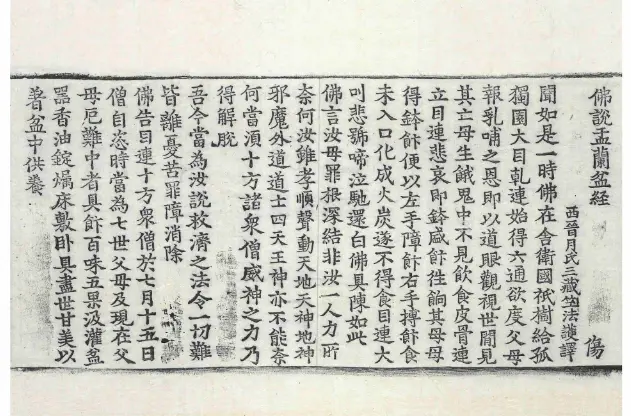 佛說盂蘭盆經　傷
西晉月氏三藏竺法護譯
聞如是一時佛在舍衛國祇樹給孤
獨園大目乹連始得六通欲度父母
報乳哺之恩即以道眼觀視世間見
其亡母生餓鬼中不見飲食皮骨連
立目連悲哀即鉢盛飰徃餉其母母
得鉢飰便以左手障飰右手摶飰食
未入口化成火炭遂不得食目連大
叫悲號啼泣馳還白佛具陳如此
佛言汝母罪根深結非汝一人力所
奈何汝雖孝順聲動天地天神地神
邪魔外道道士四天王神亦不能奈
何當湏十方諸衆僧威神之力乃
得解脫
吾今當為汝說救濟之法令一切難
皆離憂苦罪障消除
佛告目連十方衆僧於七月十五日
僧自恣時當為七世父母及現在父
母厄難中者具飰百味五果汲灌盆
器香油錠燭床敷卧具盡世甘美以
著盆中供養